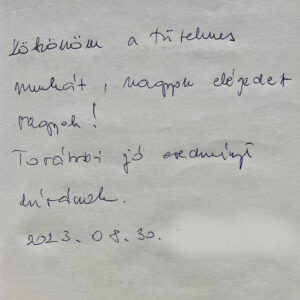 Köszönöm a türelmes
munkát, nagyon elégedet
vagyok!
További jó eredményt
kívánok.
2023. 08. 30.